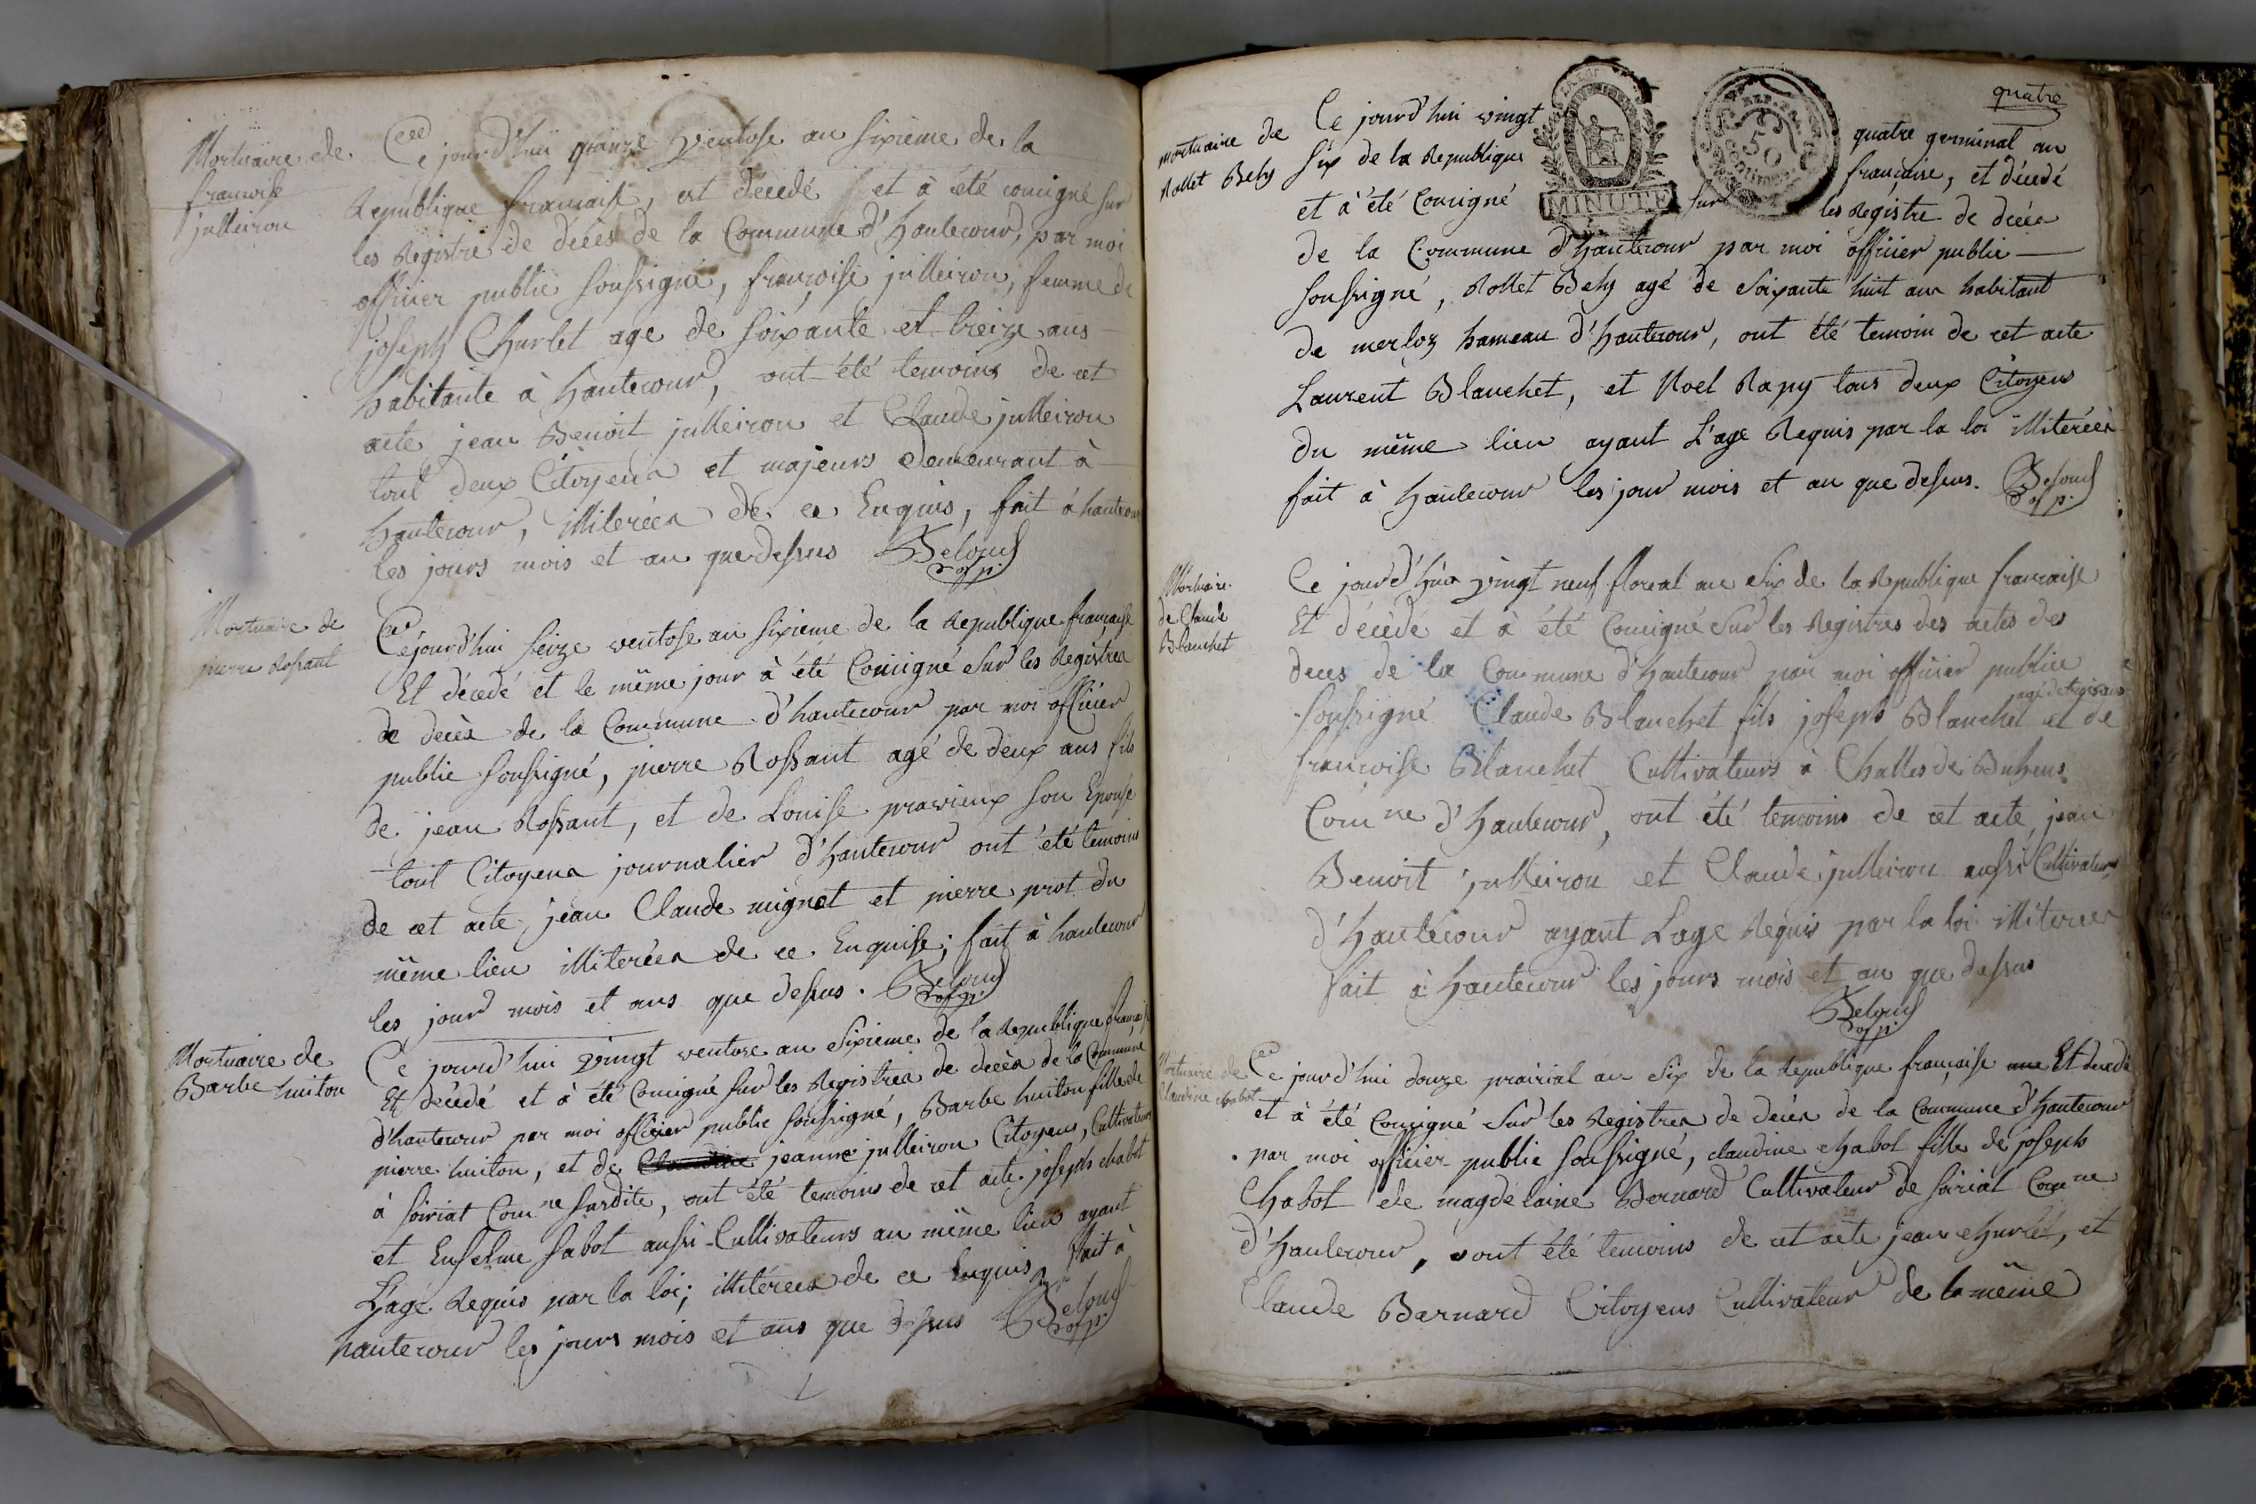 Mortuaire de
francoise
julleiron
Ce jourd'hui quinze ventose an sixieme de la
Republique francaise, est décédé et à été consigné sur
les Registre de décès de la Commune d'hautecour, par moi
officier public soussigné, françoise julleiron, femme de
joseph Churlet age de soixante et treize ans
habitante à hautecour, ont été temoins de cet
acte jean Benoit julleiron et Claude julleiron
tout deux Citoyens et majeurs demeurant à
hautecour, illiterées de ce Enquis, fait à hautecour
les jours mois et an que dessus Beloud
of. p.
Mortuaire de
pierre Rossant
Ce jourd'hui seize ventose an sixieme de la republique française
Et décédé et le même jour à été Consigné sur les Registres
de décès de la Commune d'hautecour par moi officier
public soussigné, pierre Rossant agé de deux ans fils
de jean Rossant, et de Louise pravieux son Epouse
tout Citoyens journalier d'hautecour ont été temoins
de cet acte jean Claude mignot et pierre prot du
même lien illiterées de ce Enquise; fait à hautecour
les jour mois et ans que dessus. Beloud
of. p.
Mortuaire de
Barbe huiton
Ce jourd'hui vingt ventose an Sixieme de la Republique française
Et décédé et à été Consigné sur les Registres de décès de la Commune
d'hautecour par moi officier public soussigné, Barbe huiton fille de
pierre huiton, et de jeanne julleiron Citoyens, Cultivateurs
à soiriat Comne susdite, ont été temoins de cet acte joseph chabot
et Enselme sabot aussi Cultivateurs au même lieu ayant
L'age Requis par la loi; illitérées de ce Enquis fait à
hautecour les jours mois et ans que dessus Beloud
of. p.
quatre
MINUTE
REP. FRA.
50
mortuaire de
Rollet Bely
Ce jourd'hui vingt quatre germinal an
six de la Republique française, et décédé
et à été Consigné sur les Registre de décès
de la Commune d'hautecour par moi officier public
soussigné, Rollet Bely agé de soixante huit ans habitant
de merloz hameau d'hautecour, ont été temoin de cet acte
Laurent Blanchet, et Noel Rapy tous deux Citoyens
du même lieu ayant L'age Requis par la loi illiterées
fait à hautecour les jour mois et an que dessus. Beloud
of. p.
Mortuaire
de Claude
Blanchet
Ce jourd'hui vingt neuf floreal an six de la Republique française
Et décédé et à été Consigné sur les Registres des actes des
deces de la Commune d'hautecour par moi officier public
soussigné Claude Blanchet fils joseph Blanchet et de
francoise Blanchet Cultivateurs à Challes de
Comne d'hautecour, ont été temoins de cet acte, jean
Benoit julleiron et Claude julleiron aussi Cultivateurs
d'hautecour ayant Lage Requis par la loi illiterées
fait à hautecour les jours mois et an que dessus
Beloud
of p.
Mortuaire de
Claudine chabot
Ce jourd'hui douze prairial an six de la Republique française Et décédé
et à été Consigné sur les Registres de décès de la Commune d'hautecour
par moi officier public soussigné, claudine chabot fille de joseph
Chabot de magdelaine Bernard Cultivateur de soiriat Comne
d'hautecour, ont été temoins de cet acte jean churlet, et
Claude Barnard Citoyens Cultivateur de la même